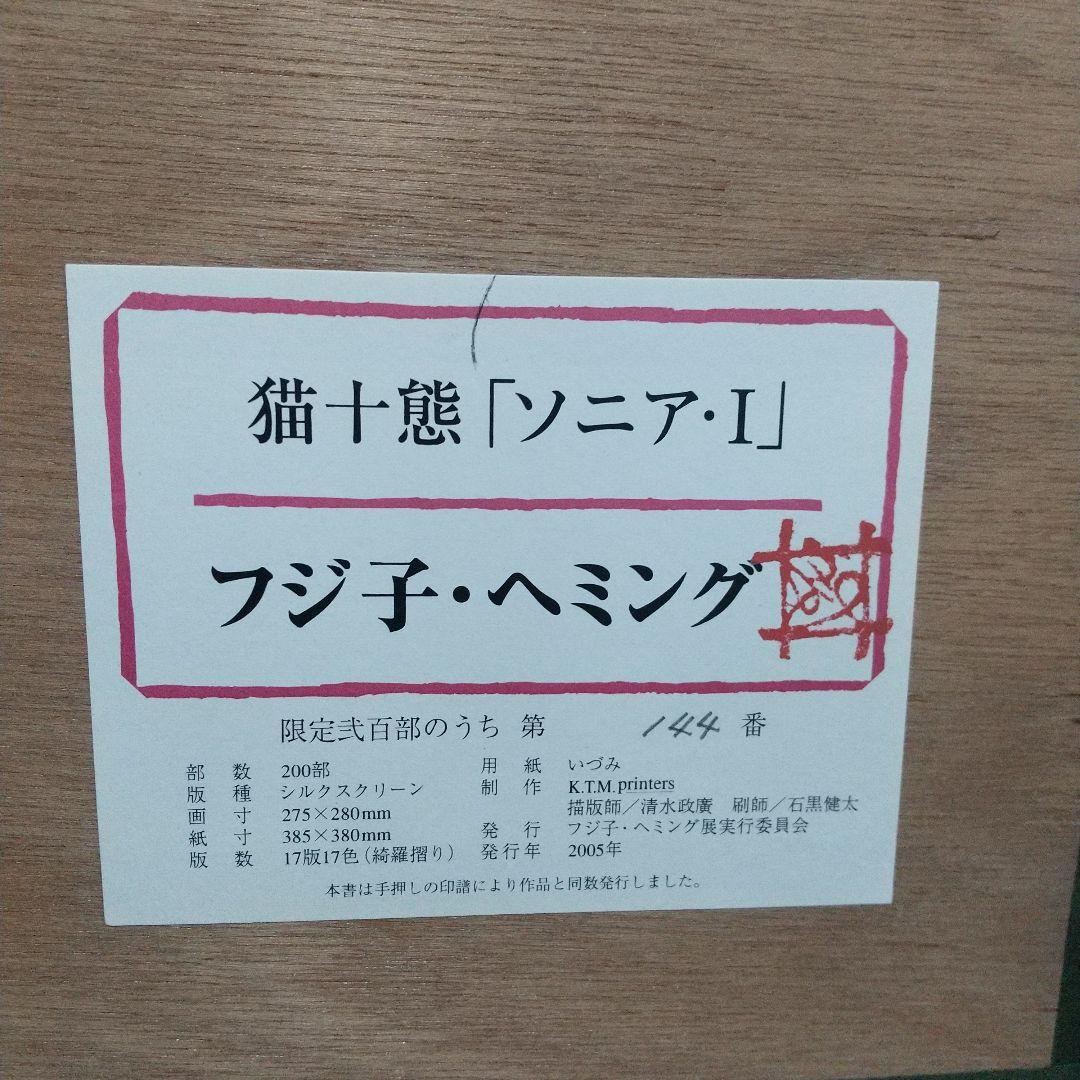 猫十態「ソニア・I」
フジ子・ヘミング
限定弐百部のうち 第 144 番
部数 200部
版種 シルクスクリーン
画寸 275×280mm
紙寸 385×380mm
版数 17版17色(綺羅摺り)
用紙 いづみ
制作 K.T.M.printers
描版師/清水政廣 刷師/石黒健太
発行 フジ子・ヘミング展実行委員会
発行年 2005年
本書は手押しの印譜により作品と同数発行しました。